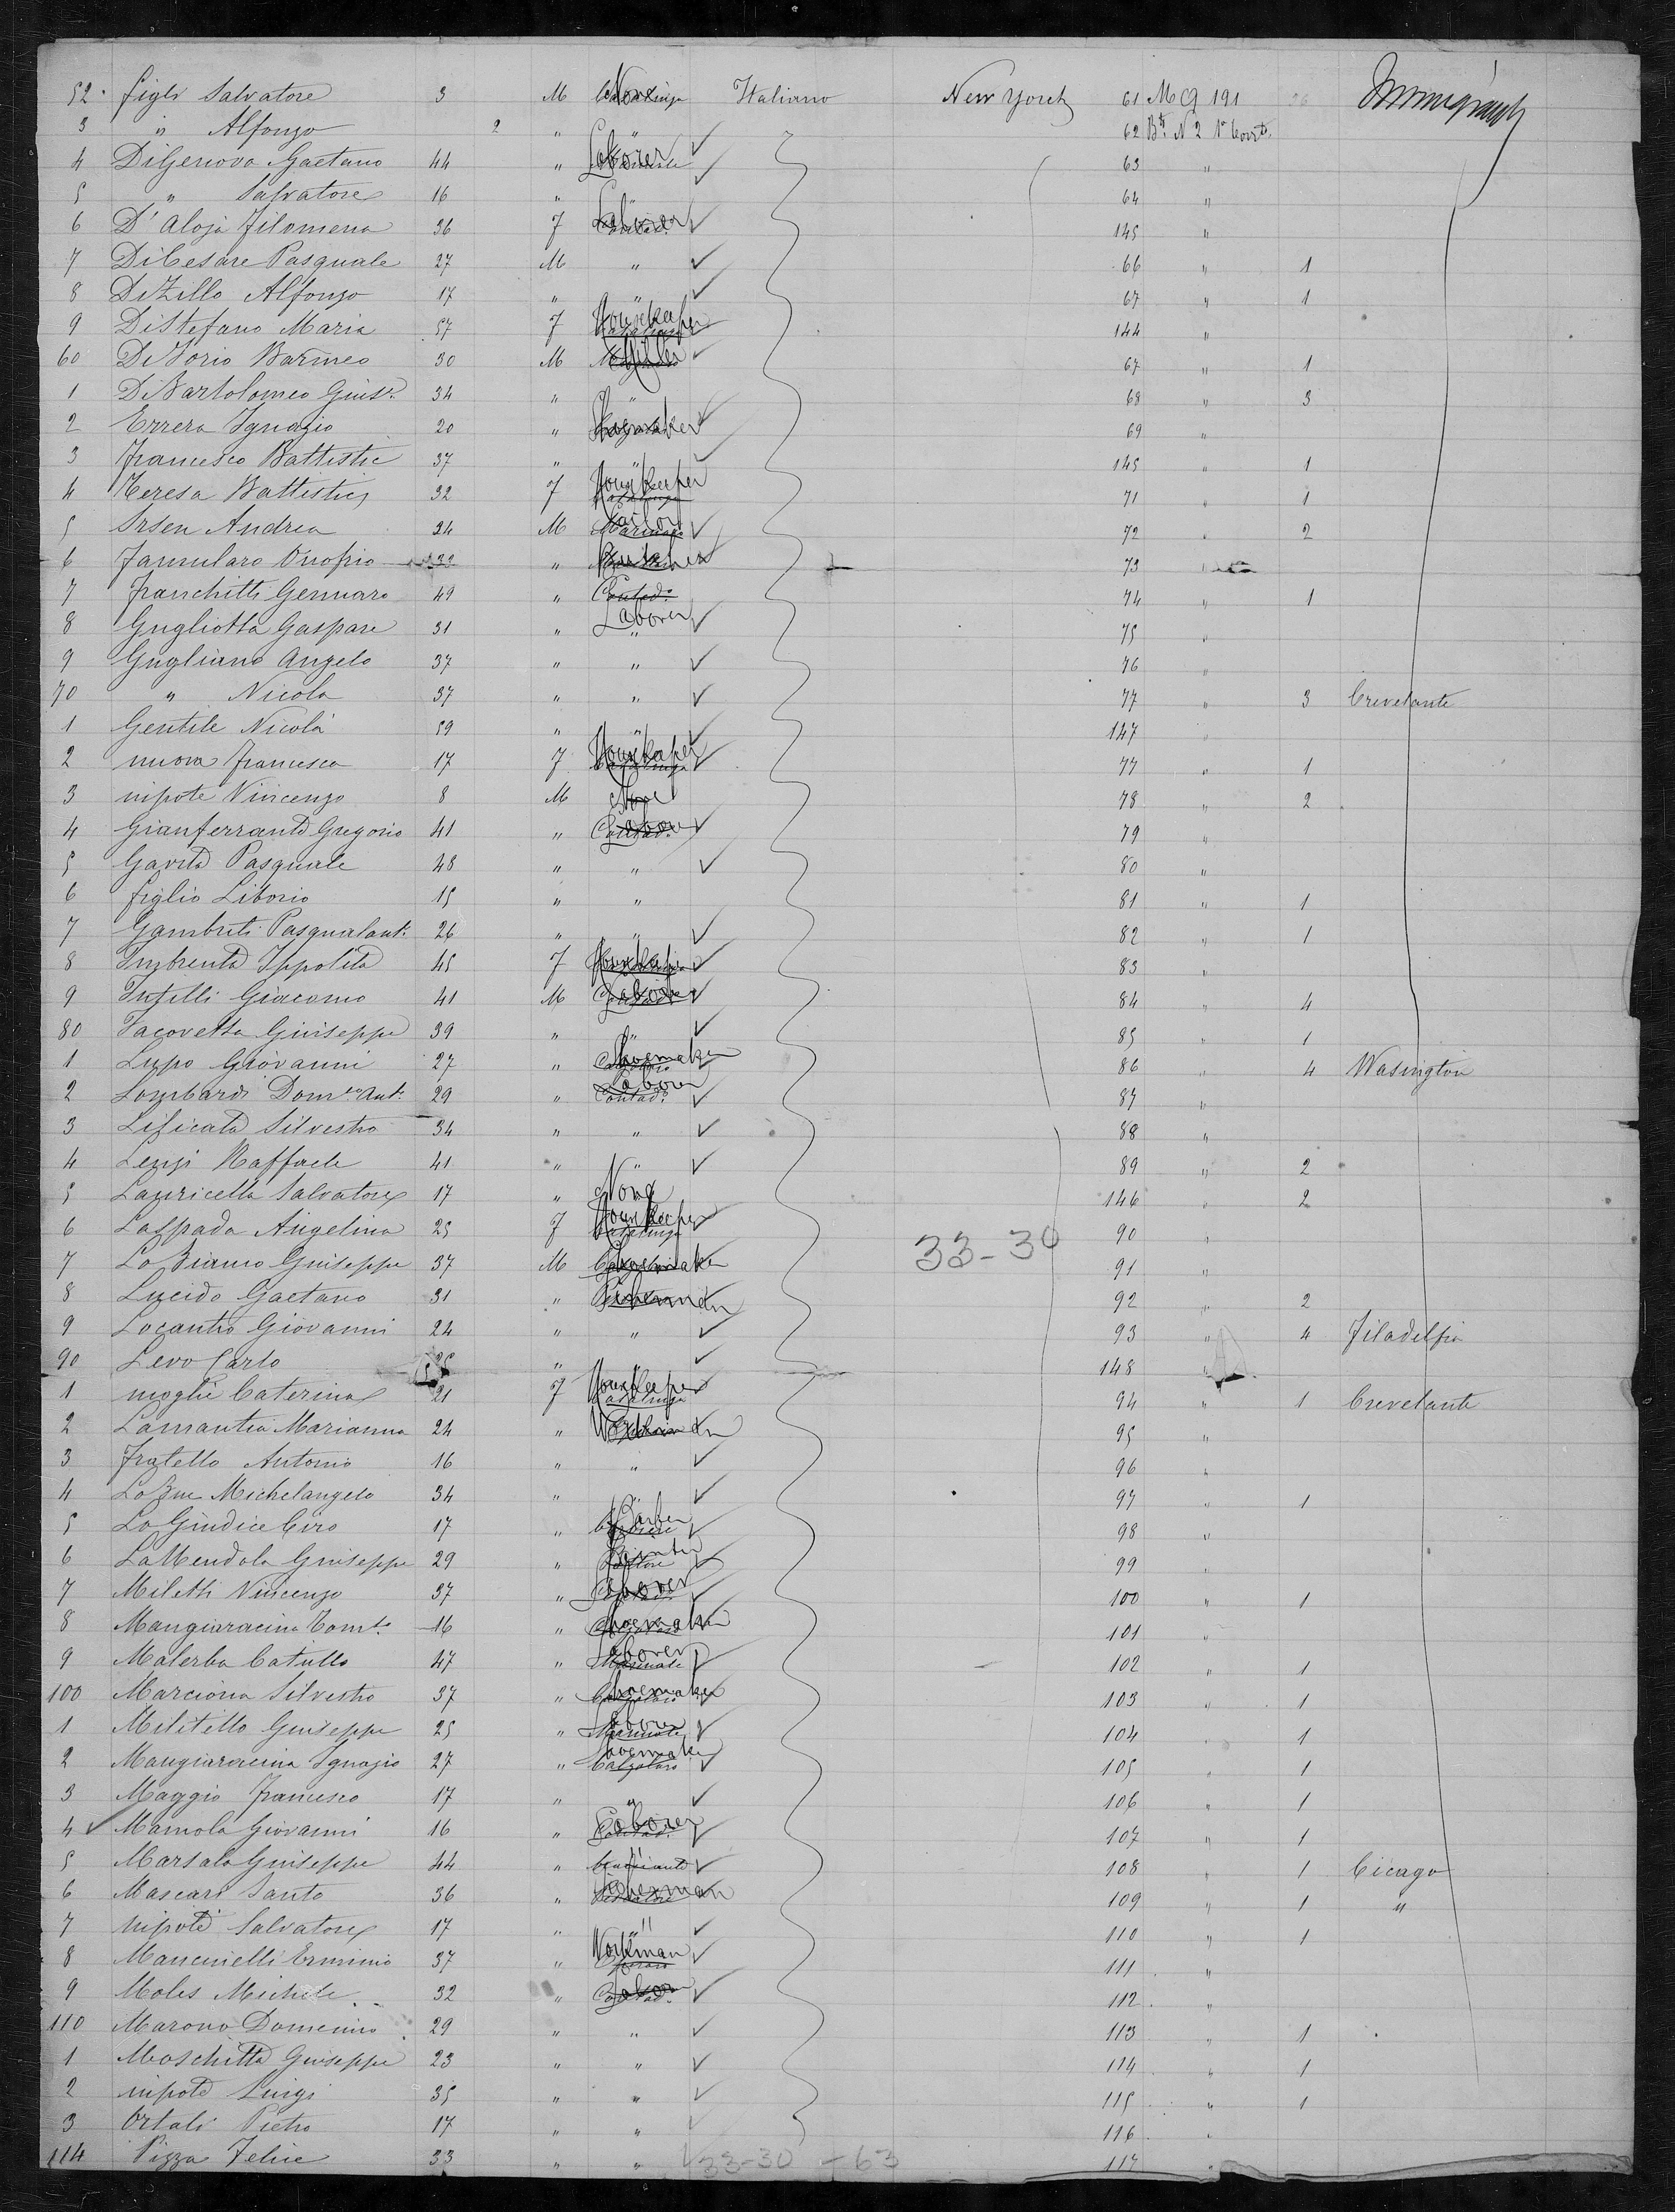 52 figlo Salvatore 3 M None Italiano New Yorck 61 M Cg 191 Immigrants
3 " Alfonzo 2 " " 62 Bto N 2 1a Corrta
4 DiGenova Gaetano 44 " Laborer 63 "
5 " Salvatore 16 " " 64 "
6 D'Aloja Filomena 36 F Laborer 145 "
7 DiCesare Pasquale 27 M " 66 " 1
8 DiZillo Alfonzo 17 " " 67 " 1
9 DiStefano Maria 57 F Housekeper 144 "
60 DiIorio Barmeo 30 M 67 " 1
1 DiBartolomeo Gius.e 34 " " 68 " 3
2 Errera Ignazio 20 " Shoemaker 69 "
3 Francesco Battistic 37 " " 145 " 1
4 Teresa Battistic 32 F Housekeeper 71 " 1
5 Srsen Andrea 34 M Sailor Marinajo 72 " 2
6 Famularo Onofrio 33 " 73 "
7 Franchitti Gennaro 49 " Contad.o 74 " 1
8 Gugliotta Gaspare 31 " Laborer 75 "
9 Gugliano Angelo 37 " " 76 "
70 " Nicola 37 " " 77 " 3 Crevelante
1 Gentile Nicola 59 " " 147 "
2 nuora Francesca 17 F Housekeper Casalinga 77 " 1
3 nipote Vincenzo 8 M None 78 " 2
4 Gianferrante Gregorio 41 " Labore Contad.o 79
5 Gavita Pasquale 48 " " 80 "
6 figlio Liborio 15 " " 81 " 1
7 Gambuti Pasqualant. 26 " " 82 " 1
8 Imbrenta Ippolita 45 F Housekeper 83 "
9 Intelli Giacomo 41 M Laborer 84 " 4
80 Iacovetta Giuseppe 39 " " 85 " 1
1 Lupo Giovanni 27 " Shoemaker Calzolaro 86 " 4 Wasington
2 Lombardi Dom.co Ant. 29 " Laborer Contad.o 87 "
3 Lificata Silvestro 34 " " 88 "
4 Lenzi Raffaele 41 " " 89 " 2
5 Lauricella Salvatore 17 " None 146 " 2
6 Laspada Angelina 25 F Housekeeper Casalinga 90 "
7 Lo Bianco Giuseppe 37 M Shoemaker 33-30 91 "
8 Lucido Gaetano 31 " Fisherman 92 " 2
9 Locantro Giovanni 24 " " 93 " 4 Filadelfia
90 Levo Carlo 25 " " 148 "
1 moglie Caterina 21 F Housekeeper Casalinga 94 " 1 Crevelante
2 Lamantia Marianna 24 " Workman 95 "
3 fratello Antonio 16 " " 96 "
4 LoBue Michelangelo 34 " " 97 " 1
5 LoGiudice Ciro 17 " Barber 98 "
6 LaMendola Giuseppe 29 " Painter Pittore 99 "
7 Miletti Vincenzo 37 " Laborer Contad.o 100 " 1
8 Mangiaracina Tom.so 16 " Shoemaker 101 "
9 Malerba Catullo 47 " Laborer Manuale 102 " 1
100 Marciona Silvestro 37 " Shoemaker Calzolaro 103 " 1
1 Militello Giuseppe 25 " Laborer Manuale 104 " 1
2 Mangiaracina Ignazio 27 " Shoemaker Calzolaro 105 " 1
3 Maggio Francesco 17 " " 106 " 1
4 Mamola Giovanni 16 " Laborer Contad.o 107 " 1
5 Marsala Giuseppe 44 " " 108 " 1 Cicago
6 Mascari Santo 36 " Fisherman 109 " 1 "
7 nipote Salvatore 17 " " 110 " 1
8 Mancinelli Erminio 37 " Workman Operaio 111 "
9 Moles Michele 32 " Labore Contad.o 112 "
110 Marono Domenico 29 " " 113 " 1
1 Moschitta Giuseppe 23 " " 114 " 1
2 nipote Luigi 35 " " 115 " 1
3 Ortali Pietro 17 " " 116 "
114 Pizza Felice 33 " " 33-30 - 63 117 "